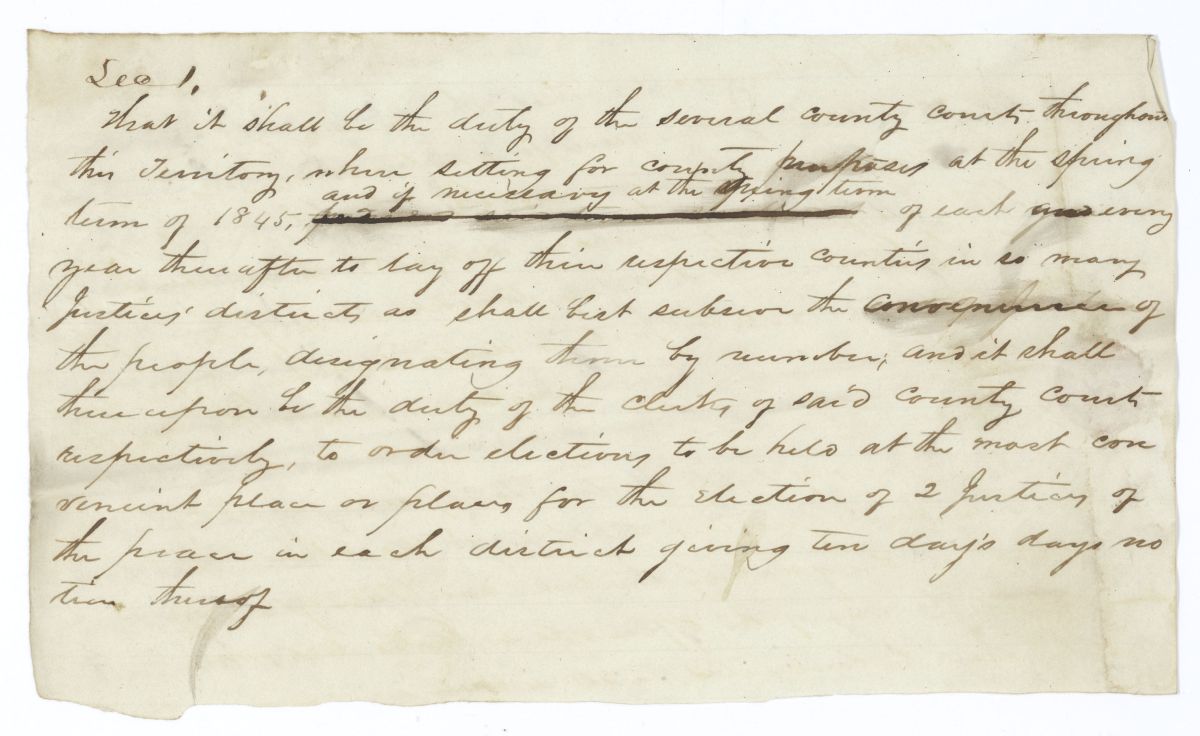 Sec 1.
that it shall be the duty of the several county courts throughout
this Territory, when setting for county purposes at the spring
and if necessary at the spring term
term of 1845, of each and every
year thereafter to lay off their respective counties in so many
Justices' districts as shall best subserve the convenience of
the people, designating them by number; and it shall
thereupon be the duty of the clerks of said county courts
respectively, to order elections to be held at the most con
venient place or places for the election of 2 Justices of
the peace in each district giving ten day's days no
tice thereof